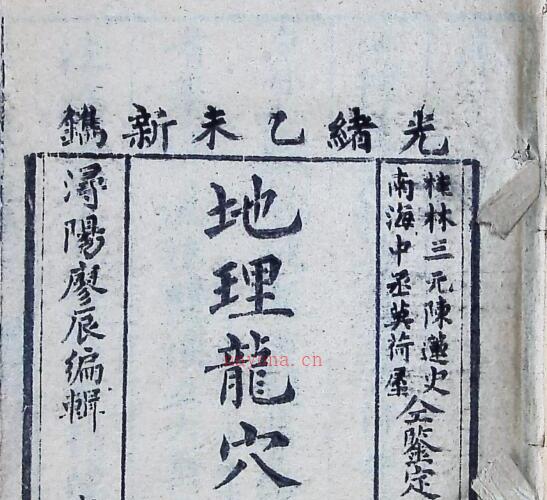 光緒乙未新鐫
桂林三元陳蓮史
南海中丞吳荷屋
仝鑒定
地理龍穴
潯陽廖辰編輯